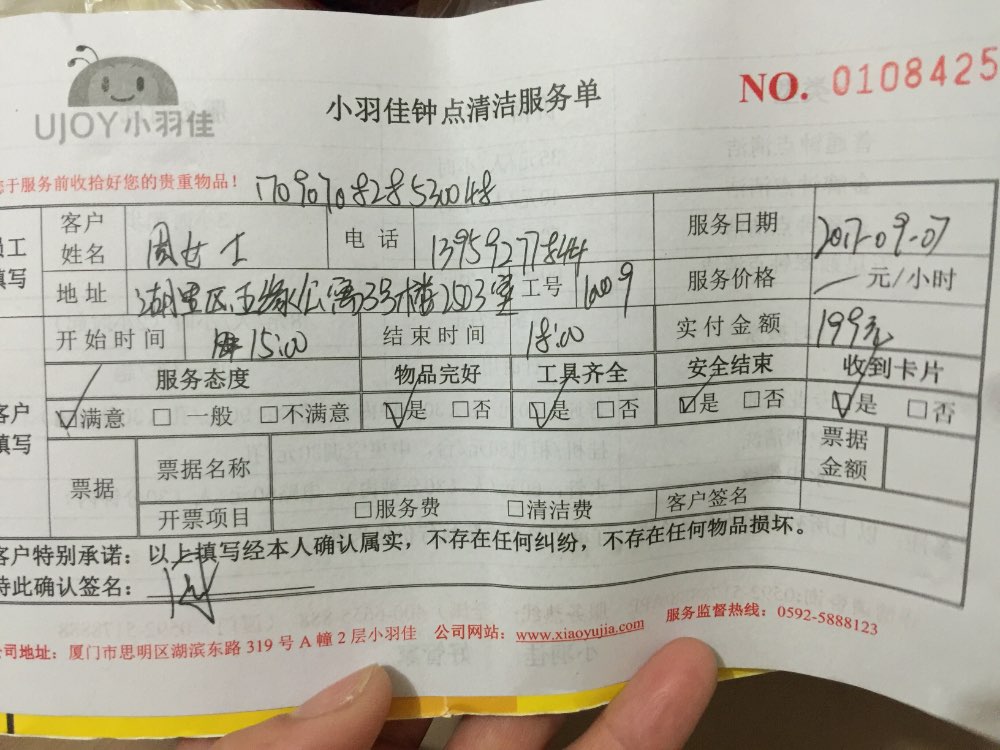 UJOY小羽佳
小羽佳钟点清洁服务单
NO. 0108425
您于服务前收拾好您的贵重物品!
1709070828530048
员工填写
客户姓名 周女士 电话 13959277844 服务日期 2017-09-07
地址 湖里区五缘公寓3号楼2503室 工号 1609 服务价格 元/小时
开始时间 15:00 结束时间 18:00 实付金额 199元
客户填写
服务态度 物品完好 工具齐全 安全结束 收到卡片
☑满意 □一般 □不满意 ☑是 □否 ☑是 □否 ☑是 □否 ☑是 □否
票据 票据名称 票据金额
开票项目 □服务费 □清洁费 客户签名
客户特别承诺：以上填写经本人确认属实，不存在任何纠纷，不存在任何物品损坏。
特此确认签名：
公司地址：厦门市思明区湖滨东路319号A幢2层小羽佳 公司网站：www.xiaoyujia.com 服务监督热线：0592-5888123